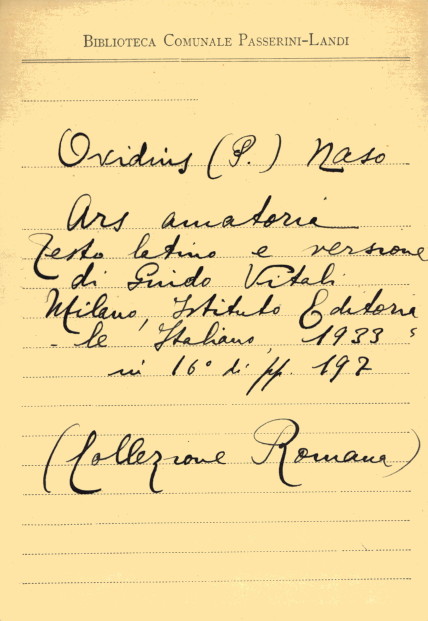 BIBLIOTECA COMUNALE PASSERINI-LANDI
Ovidius (P.) Naso
Ars amatoria
Testo latino e versione
di Guido Vitali
Milano, Istituto Editoria
-le Italiano, 1933
in 16° di pp 197
(Collezione Romana)